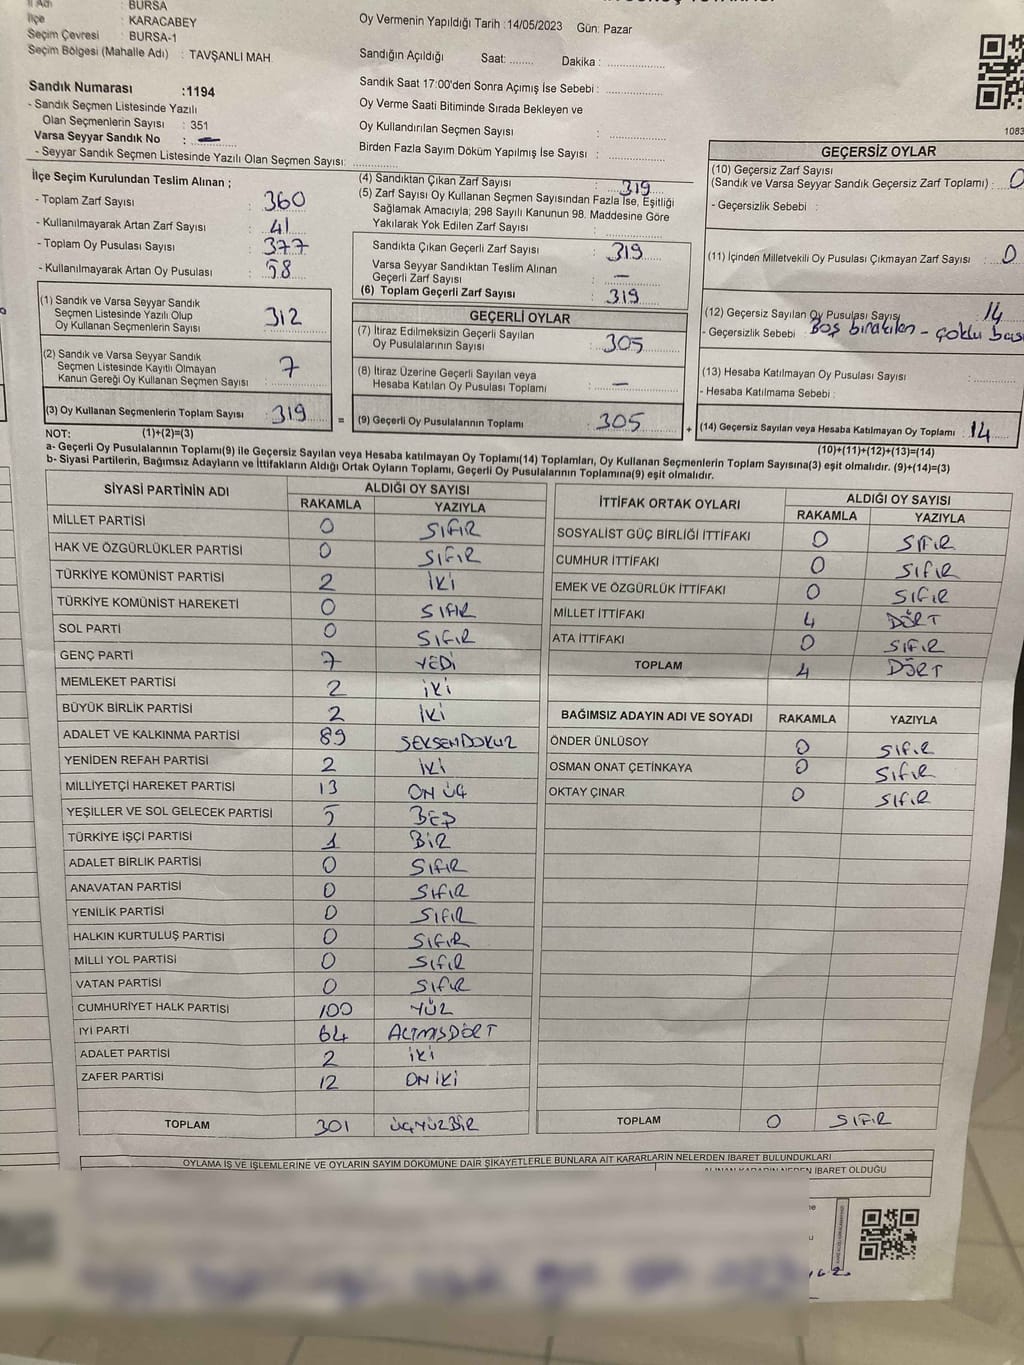 BURSA
İlçe : KARACABEY
Seçim Çevresi : BURSA-1
Seçim Bölgesi (Mahalle Adı) : TAVŞANLI MAH
Sandık Numarası :1194
- Sandık Seçmen Listesinde Yazılı
Olan Seçmenlerin Sayısı : 351
Varsa Seyyar Sandık No : —
- Seyyar Sandık Seçmen Listesinde Yazılı Olan Seçmen Sayısı:
Oy Vermenin Yapıldığı Tarih :14/05/2023 Gün: Pazar
Sandığın Açıldığı Saat: ........ Dakika : ..................
Sandık Saat 17:00'den Sonra Açımış İse Sebebi : ..................
Oy Verme Saati Bitiminde Sırada Bekleyen ve
Oy Kullandırılan Seçmen Sayısı : ..................
Birden Fazla Sayım Döküm Yapılmış İse Sayısı : ..................
1083
İlçe Seçim Kurulundan Teslim Alınan ;
- Toplam Zarf Sayısı : 360
- Kullanılmayarak Artan Zarf Sayısı : 41
- Toplam Oy Pusulası Sayısı : 377
- Kullanılmayarak Artan Oy Pusulası : 58
(1) Sandık ve Varsa Seyyar Sandık
Seçmen Listesinde Yazılı Olup
Oy Kullanan Seçmenlerin Sayısı : 312
(2) Sandık ve Varsa Seyyar Sandık
Seçmen Listesinde Kayıtlı Olmayan
Kanun Gereği Oy Kullanan Seçmen Sayısı : 7
(3) Oy Kullanan Seçmenlerin Toplam Sayısı : 319 =
(4) Sandıktan Çıkan Zarf Sayısı : 319
(5) Zarf Sayısı Oy Kullanan Seçmen Sayısından Fazla İse, Eşitliği
Sağlamak Amacıyla; 298 Sayılı Kanunun 98. Maddesine Göre
Yakılarak Yok Edilen Zarf Sayısı : ..................
Sandıkta Çıkan Geçerli Zarf Sayısı : 319
Varsa Seyyar Sandıktan Teslim Alınan
Geçerli Zarf Sayısı : —
(6) Toplam Geçerli Zarf Sayısı : 319
GEÇERLİ OYLAR
(7) İtiraz Edilmeksizin Geçerli Sayılan
Oy Pusulalarının Sayısı : 305
(8) İtiraz Üzerine Geçerli Sayılan veya
Hesaba Katılan Oy Pusulası Toplamı : —
(9) Geçerli Oy Pusulalarının Toplamı : 305 +
GEÇERSİZ OYLAR
(10) Geçersiz Zarf Sayısı
(Sandık ve Varsa Seyyar Sandık Geçersiz Zarf Toplamı) : 0
- Geçersizlik Sebebi :
(11) İçinden Milletvekili Oy Pusulası Çıkmayan Zarf Sayısı : 0
(12) Geçersiz Sayılan Oy Pusulası Sayısı 14
- Geçersizlik Sebebi : Boş bırakılan - çoklu bası
(13) Hesaba Katılmayan Oy Pusulası Sayısı :
- Hesaba Katılmama Sebebi :
(14) Geçersiz Sayılan veya Hesaba Katılmayan Oy Toplamı : 14
NOT: (1)+(2)=(3) (10)+(11)+(12)+(13)=(14)
a- Geçerli Oy Pusulalarının Toplamı(9) ile Geçersiz Sayılan veya Hesaba katılmayan Oy Toplamı(14) Toplamları, Oy Kullanan Seçmenlerin Toplam Sayısına(3) eşit olmalıdır. (9)+(14)=(3)
b- Siyasi Partilerin, Bağımsız Adayların ve İttifakların Aldığı Ortak Oyların Toplamı, Geçerli Oy Pusulalarının Toplamına(9) eşit olmalıdır.
SİYASİ PARTİNİN ADI ALDIĞI OY SAYISI
RAKAMLA YAZIYLA
MİLLET PARTİSİ 0 SIFIR
HAK VE ÖZGÜRLÜKLER PARTİSİ 0 SIFIR
TÜRKİYE KOMÜNİST PARTİSİ 2 İKİ
TÜRKİYE KOMÜNİST HAREKETİ 0 SIFIR
SOL PARTİ 0 SIFIR
GENÇ PARTİ 7 YEDİ
MEMLEKET PARTİSİ 2 İKİ
BÜYÜK BİRLİK PARTİSİ 2 İKİ
ADALET VE KALKINMA PARTİSİ 89 SEKSENDOKUZ
YENİDEN REFAH PARTİSİ 2 İKİ
MİLLİYETÇİ HAREKET PARTİSİ 13 ON ÜÇ
YEŞİLLER VE SOL GELECEK PARTİSİ 5 BEŞ
TÜRKİYE İŞÇİ PARTİSİ 1 BİR
ADALET BİRLİK PARTİSİ 0 SIFIR
ANAVATAN PARTİSİ 0 SIFIR
YENİLİK PARTİSİ 0 SIFIR
HALKIN KURTULUŞ PARTİSİ 0 SIFIR
MİLLİ YOL PARTİSİ 0 SIFIR
VATAN PARTİSİ 0 SIFIR
CUMHURİYET HALK PARTİSİ 100 YÜZ
İYİ PARTİ 64 ALTMIŞDÖRT
ADALET PARTİSİ 2 İKİ
ZAFER PARTİSİ 12 ON İKİ
TOPLAM 301 ÜÇYÜZBİR
İTTİFAK ORTAK OYLARI ALDIĞI OY SAYISI
RAKAMLA YAZIYLA
SOSYALİST GÜÇ BİRLİĞİ İTTİFAKI 0 SIFIR
CUMHUR İTTİFAKI 0 SIFIR
EMEK VE ÖZGÜRLÜK İTTİFAKI 0 SIFIR
MİLLET İTTİFAKI 4 DÖRT
ATA İTTİFAKI 0 SIFIR
TOPLAM 4 DÖRT
BAĞIMSIZ ADAYIN ADI VE SOYADI RAKAMLA YAZIYLA
ÖNDER ÜNLÜSOY 0 SIFIR
OSMAN ONAT ÇETİNKAYA 0 SIFIR
OKTAY ÇINAR 0 SIFIR
TOPLAM 0 SIFIR
OYLAMA İŞ VE İŞLEMLERİNE VE OYLARIN SAYIM DÖKÜMÜNE DAİR ŞİKAYETLERLE BUNLARA AİT KARARLARIN NELERDEN İBARET BULUNDUKLARI
ALINAN KARARIN NEDEN İBARET OLDUĞU